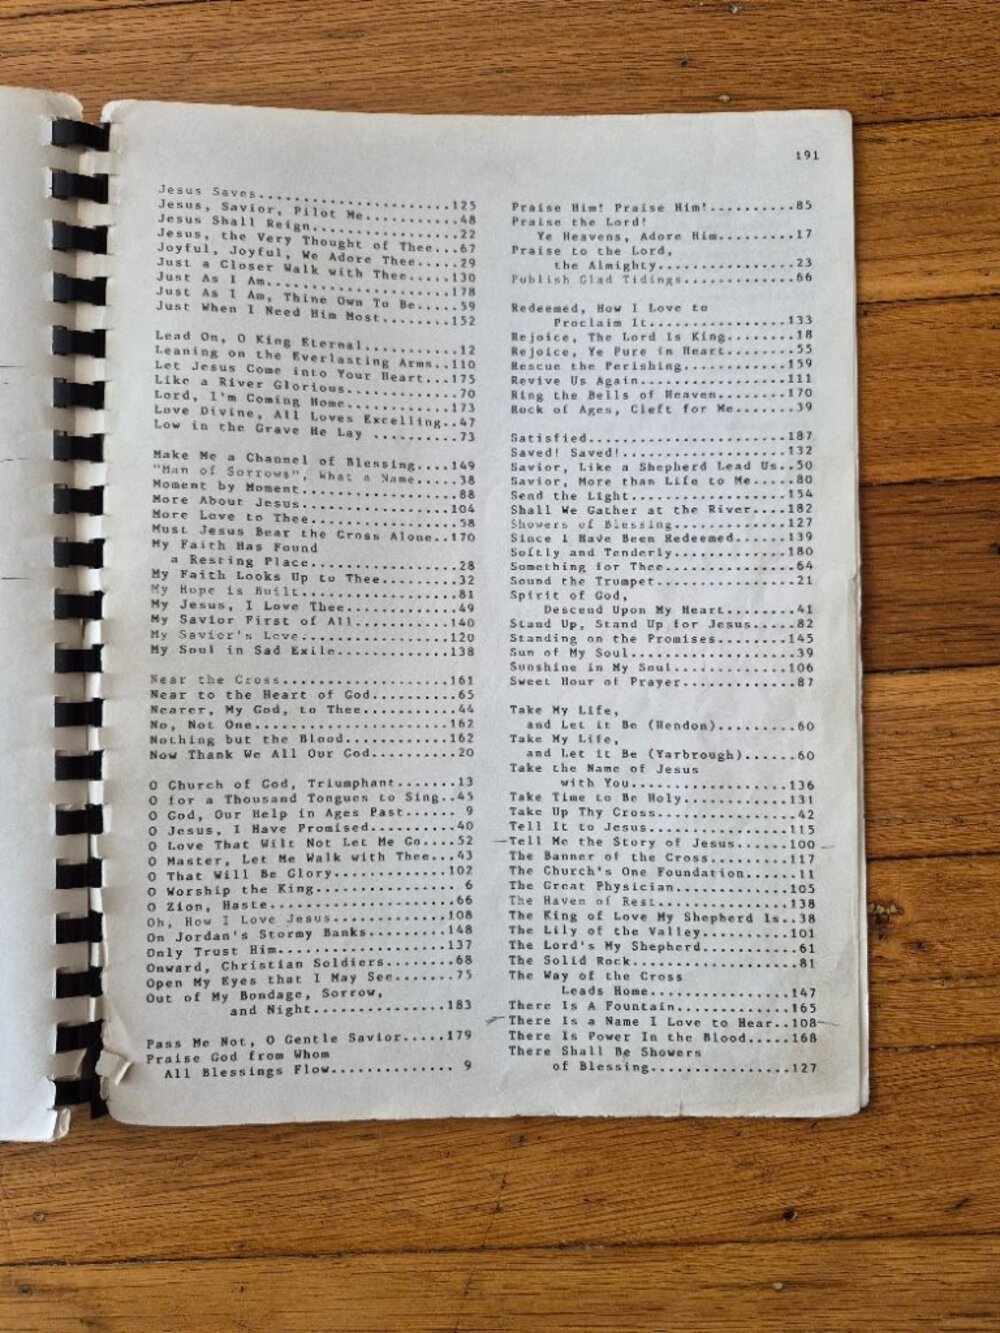 191
Jesus Saves........................125
Jesus, Savior, Pilot Me..........48
Jesus Shall Reign................22
Jesus, the Very Thought of Thee...67
Joyful, Joyful, We Adore Thee.....29
Just a Closer Walk with Thee....130
Just As I Am....................178
Just As I Am, Thine Own To Be....59
Just When I Need Him Most.......152
Lead On, O King Eternal..........12
Leaning on the Everlasting Arms..110
Let Jesus Come into Your Heart...175
Like a River Glorious............70
Lord, I'm Coming Home...........173
Love Divine, All Loves Excelling..47
Low in the Grave He Lay .........73
Make Me a Channel of Blessing....149
"Man of Sorrows", What a Name....38
Moment by Moment.................88
More About Jesus................104
More Love to Thee................58
Must Jesus Bear the Cross Alone..170
My Faith Has Found
a Resting Place...............28
My Faith Looks Up to Thee........32
My Hope is Built.................81
My Jesus, I Love Thee............49
My Savior First of All..........140
My Savior's Love................120
My Soul in Sad Exile............138
Near the Cross..................161
Near to the Heart of God.........65
Nearer, My God, to Thee..........44
No, Not One.....................162
Nothing but the Blood...........162
Now Thank We All Our God.........20
O Church of God, Triumphant......13
O for a Thousand Tongues to Sing..45
O God, Our Help in Ages Past...... 9
O Jesus, I Have Promised.........40
O Love That Wilt Not Let Me Go....52
O Master, Let Me Walk with Thee...43
O That Will Be Glory............102
O Worship the King............... 6
O Zion, Haste....................66
Oh, How I Love Jesus............108
On Jordan's Stormy Banks........148
Only Trust Him..................137
Onward, Christian Soldiers.......68
Open My Eyes that I May See......75
Out of My Bondage, Sorrow,
and Night...............183
Pass Me Not, O Gentle Savior.....179
Praise God from Whom
All Blessings Flow............ 9
Praise Him! Praise Him!..........85
Praise the Lord!
Ye Heavens, Adore Him.........17
Praise to the Lord,
the Almighty................23
Publish Glad Tidings.............66
Redeemed, How I Love to
Proclaim It................133
Rejoice, The Lord Is King........18
Rejoice, Ye Pure in Heart........55
Rescue the Perishing............159
Revive Us Again.................111
Ring the Bells of Heaven........170
Rock of Ages, Cleft for Me.......39
Satisfied.......................187
Saved! Saved!...................132
Savior, Like a Shepherd Lead Us..50
Savior, More than Life to Me.....80
Send the Light..................154
Shall We Gather at the River....182
Showers of Blessing.............127
Since I Have Been Redeemed......139
Softly and Tenderly.............180
Something for Thee...............64
Sound the Trumpet................21
Spirit of God,
Descend Upon My Heart........41
Stand Up, Stand Up for Jesus.....82
Standing on the Promises........145
Sun of My Soul...................39
Sunshine in My Soul.............106
Sweet Hour of Prayer.............87
Take My Life,
and Let it Be (Hendon)........60
Take My Life,
and Let it Be (Yarbrough)......60
Take the Name of Jesus
with You..................136
Take Time to Be Holy............131
Take Up Thy Cross................42
Tell It to Jesus................115
Tell Me the Story of Jesus......100
The Banner of the Cross.........117
The Church's One Foundation......11
The Great Physician.............105
The Haven of Rest...............138
The King of Love My Shepherd Is..38
The Lily of the Valley..........101
The Lord's My Shepherd...........61
The Solid Rock...................81
The Way of the Cross
Leads Home.................147
There Is A Fountain.............165
There Is a Name I Love to Hear..108
There Is Power In the Blood.....168
There Shall Be Showers
of Blessing.................127